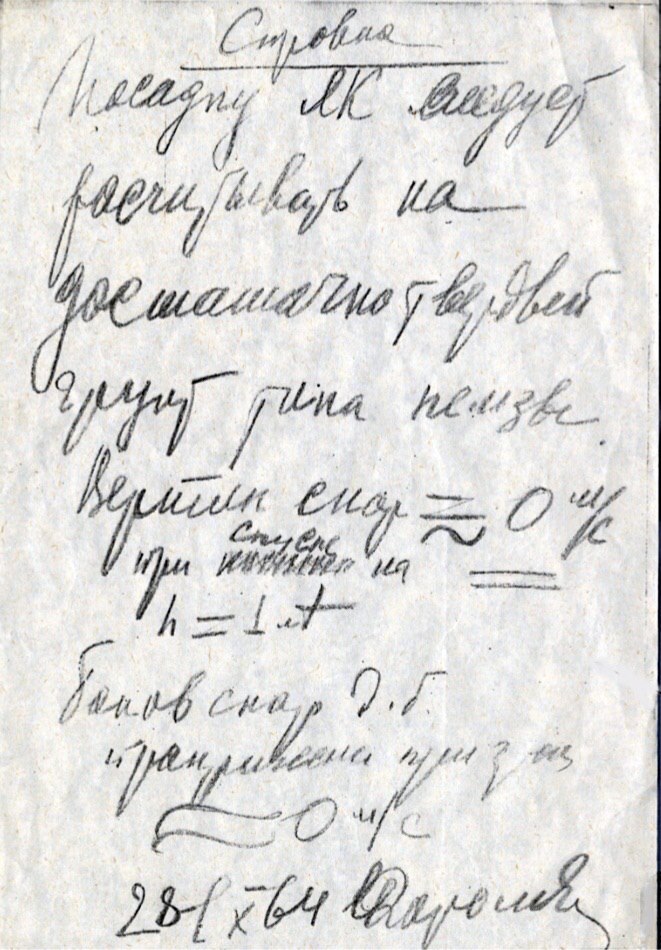 Справка
Посадку ЛК следует
расчитывать на
достаточно твердый
грунт типа пемзы.
Вертик скор ≈ 0 м/с
при спуске на
h = 1 м
Боков скор д.б.
≈ 0 м/с
28/X 64 Королев